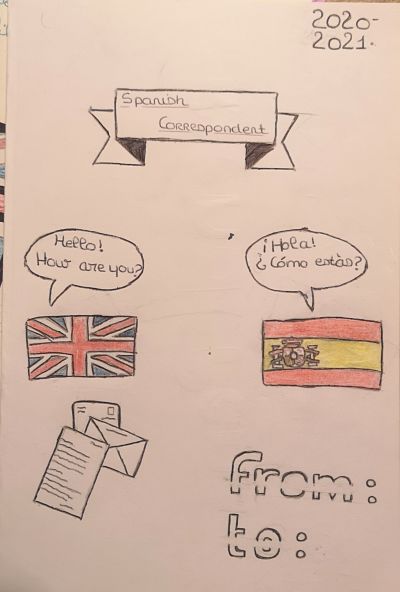 2020-
2021.
Spanish
Correspondent
Hello!
How are you?
¡Hola!
¿Cómo estàs?
from:
to: